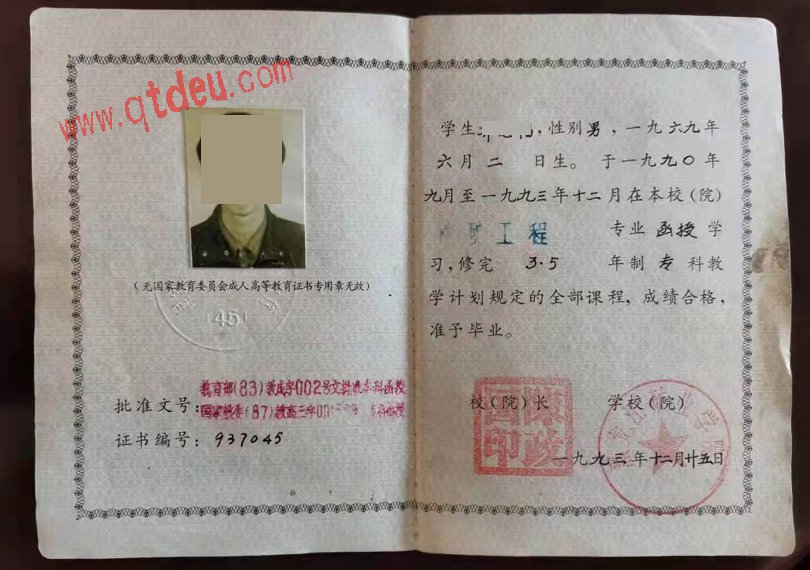 www.qtdeu.com
(无国家教育委员会成人高等教育证书专用章无效)
(45)
批准文号:
教育部(83)教成字002号文批准本科函授
国家教委(87)教高三字 专科函授
证书编号: 937045
学生 , 性别男, 一九六九年
六月二 日生。于一九九〇年
九月至一九九三年十二月在本校(院)
矿工程 专业函授学
习, 修完 3.5 年制专科教
学计划规定的全部课程, 成绩合格,
准予毕业。
校(院)长 学校(院)
一九九三年十二月廿五日